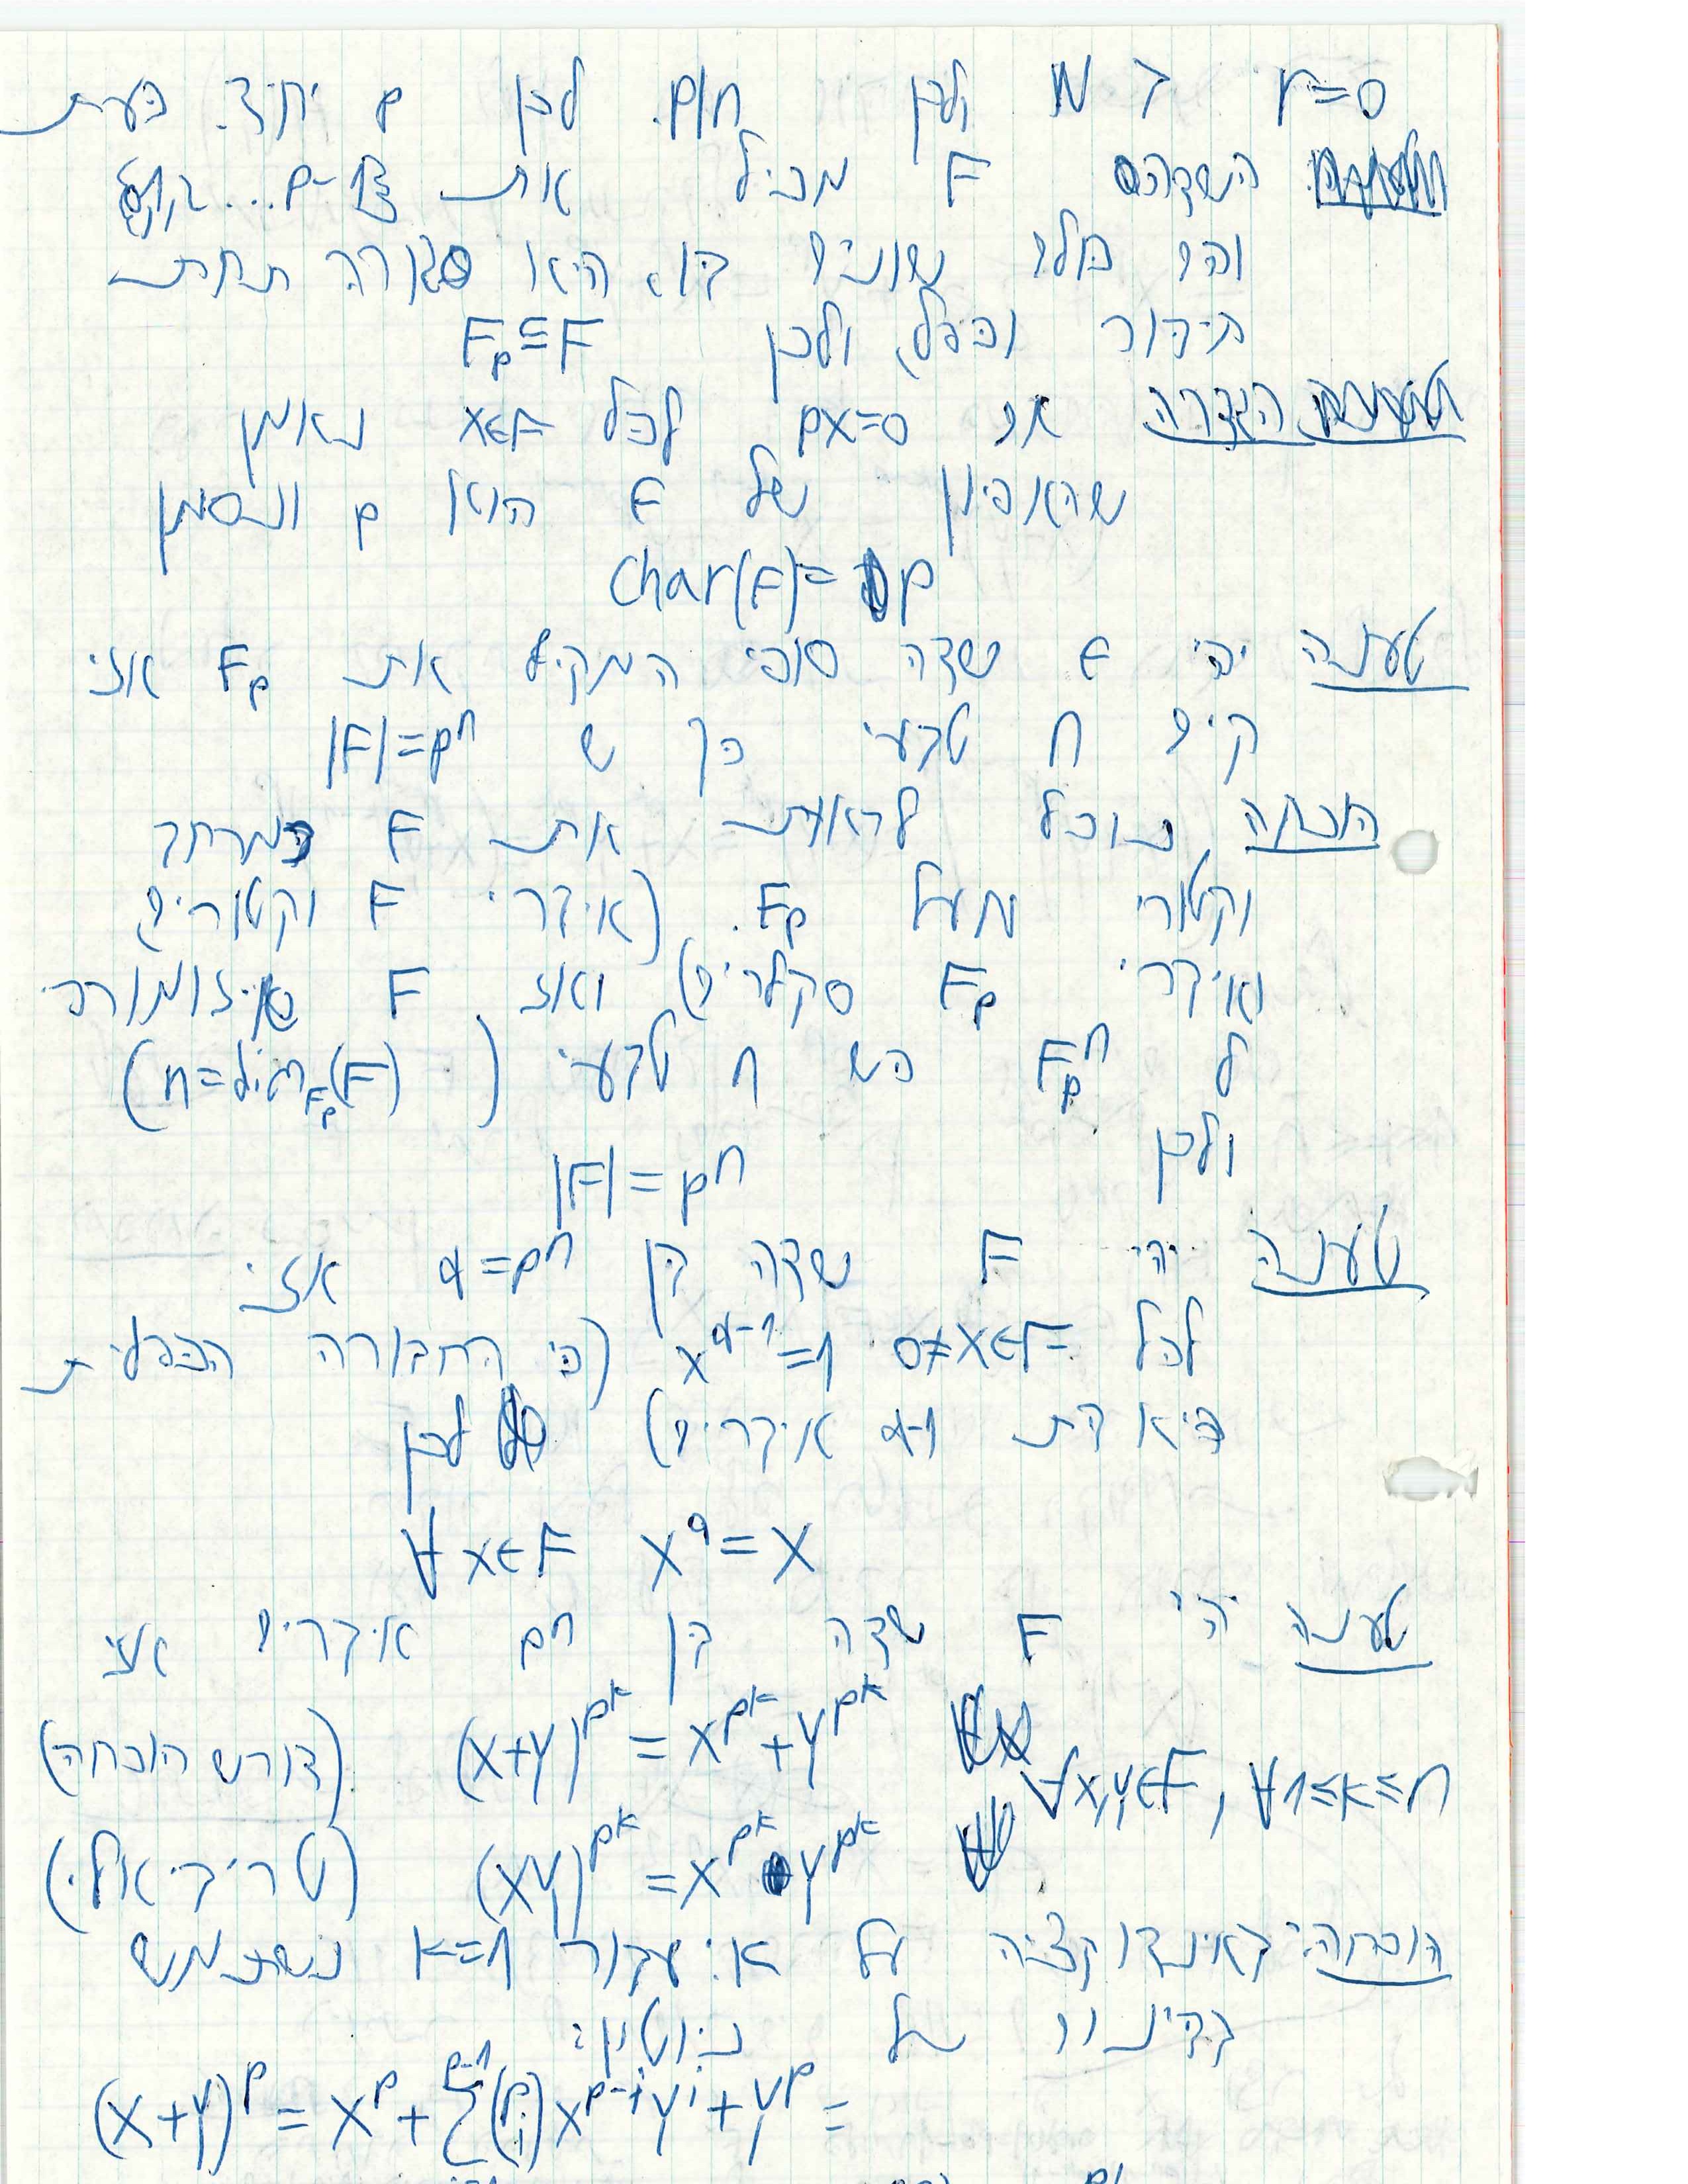 r=0 ולכן p|n. לכן p יחיד. כעת
השדה F מכיל את 0,1,...p-1
והם כולם שונים בו, היא סגורה תחת
חיבור וכפל, ולכן F_p⊆F
הגדרה אם px=0 לכל x∈F נאמר
שהאפיון של F הוא p ונסמן
char(F)=p
טענה יהי F שדה סופי המקיל את F_p אזי
קיים n טבעי כך ש |F|=p^n
הוכחה נוכל לראות את F כמרחב
וקטורי מעל F_p. (איברי F וקטורים,
ואיברי F_p סקלרים) ואז F איזומורפי
ל F_p^n כש n טבעי (n=dim_{F_p}(F))
ולכן
|F|=p^n
טענה יהי F שדה בן q=p^n אזי
לכל 0≠x∈F x^{q-1}=1 (כי החבורה הכפלית
היא בת q-1 איברים) לכן
∀x∈F x^q=x
טענה יהי F שדה בן p^n איברים אזי
(x+y)^{p^k}=x^{p^k}+y^{p^k} (דורש הוכחה)
∀x,y∈F, ∀1≤k≤n
(xy)^{p^k}=x^{p^k}y^{p^k} (טריביאלי)
הוכחה: באינדוקציה על k: עבור k=1 נשתמש
בבינום של ניוטון:
(x+y)^p=x^p+Σ^{p-1}(p i)x^{p-i}y^i+y^p=